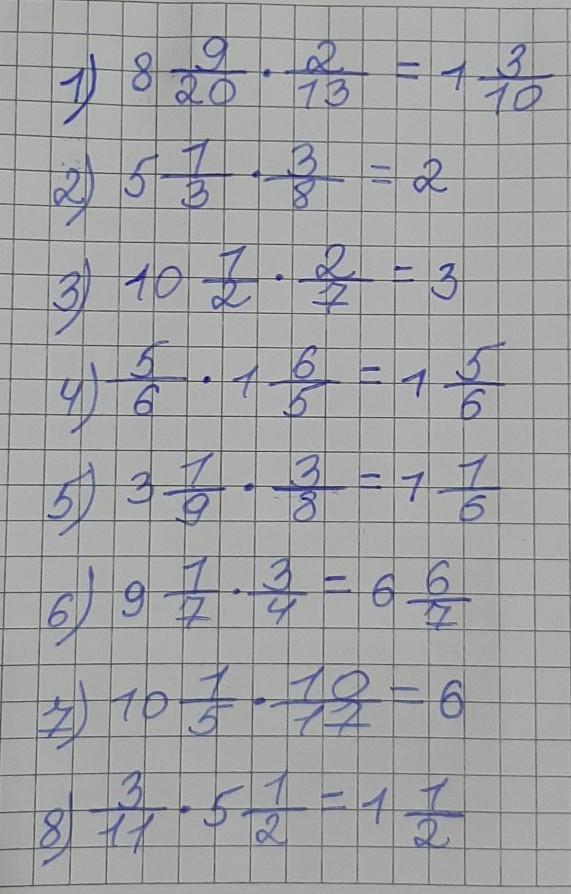 1) 8 9/20 · 2/13 = 1 3/10
2) 5 1/3 · 3/8 = 2
3) 10 1/2 · 2/7 = 3
4) 5/6 · 1 6/5 = 1 5/6
5) 3 1/9 · 3/8 = 1 1/6
6) 9 1/7 · 3/4 = 6 6/7
7) 10 1/5 · 10/17 = 6
8) 3/11 · 5 1/2 = 1 1/2